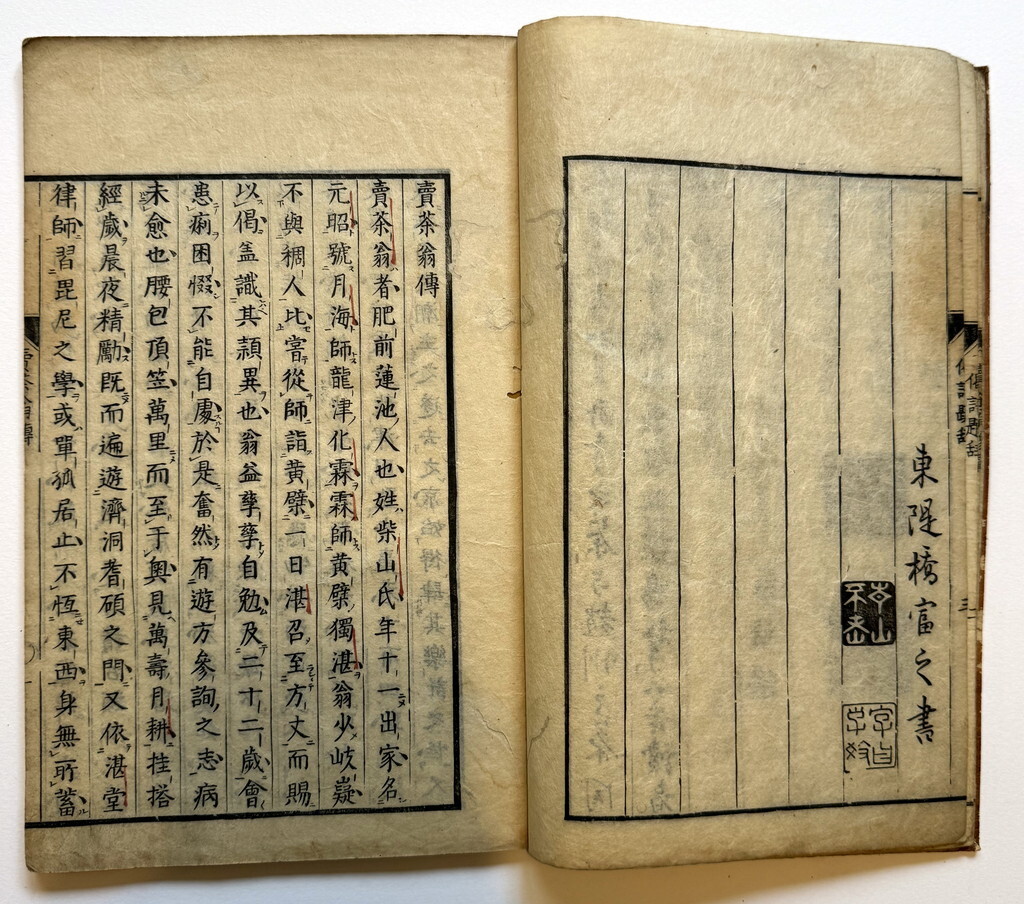 東隄橋富之書
賣茶翁傳
賣茶翁者肥前蓮池人也姓柴山氏年十一出家名
元昭號月海師龍津化霖霖師黃檗獨湛翁少岐嶷
不與稠人比嘗從師詣黃檗一日湛召至方丈而賜
以偈盖識其穎異也翁益孳孳自勉及二十二歲會
患痢困惙不能自處於是奮然有遊方參詢之志病
未愈也腰包頂笠萬里而至于奧見萬壽月耕挂搭
經歲晨夜精勵既而遍遊濟洞耆碩之門又依湛堂
律師習毘尼之學或單孤居止不恆東西身無所蓄